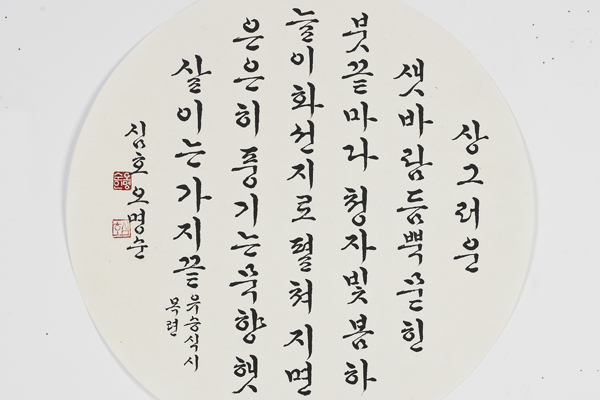 상그러운
샛바람듬뿍묻힌
붓끝마다청자빛봄하
늘이화선지로펼쳐지면
은은히풍기는묵향햇
살이는가지끝
유승식시
목련
심호오명순